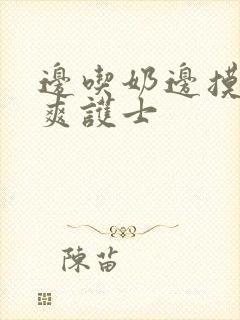 邊喫奶邊摸
爽護士
陳苗